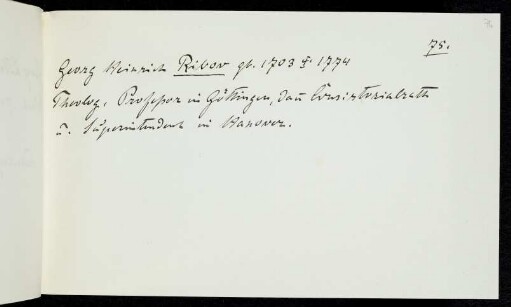 75.
Georg Heinrich Ribov gb. 1703 † 1774
Theolog, Professor in Göttingen, dan Consistorialrath
u. Superintendent in Hanover.